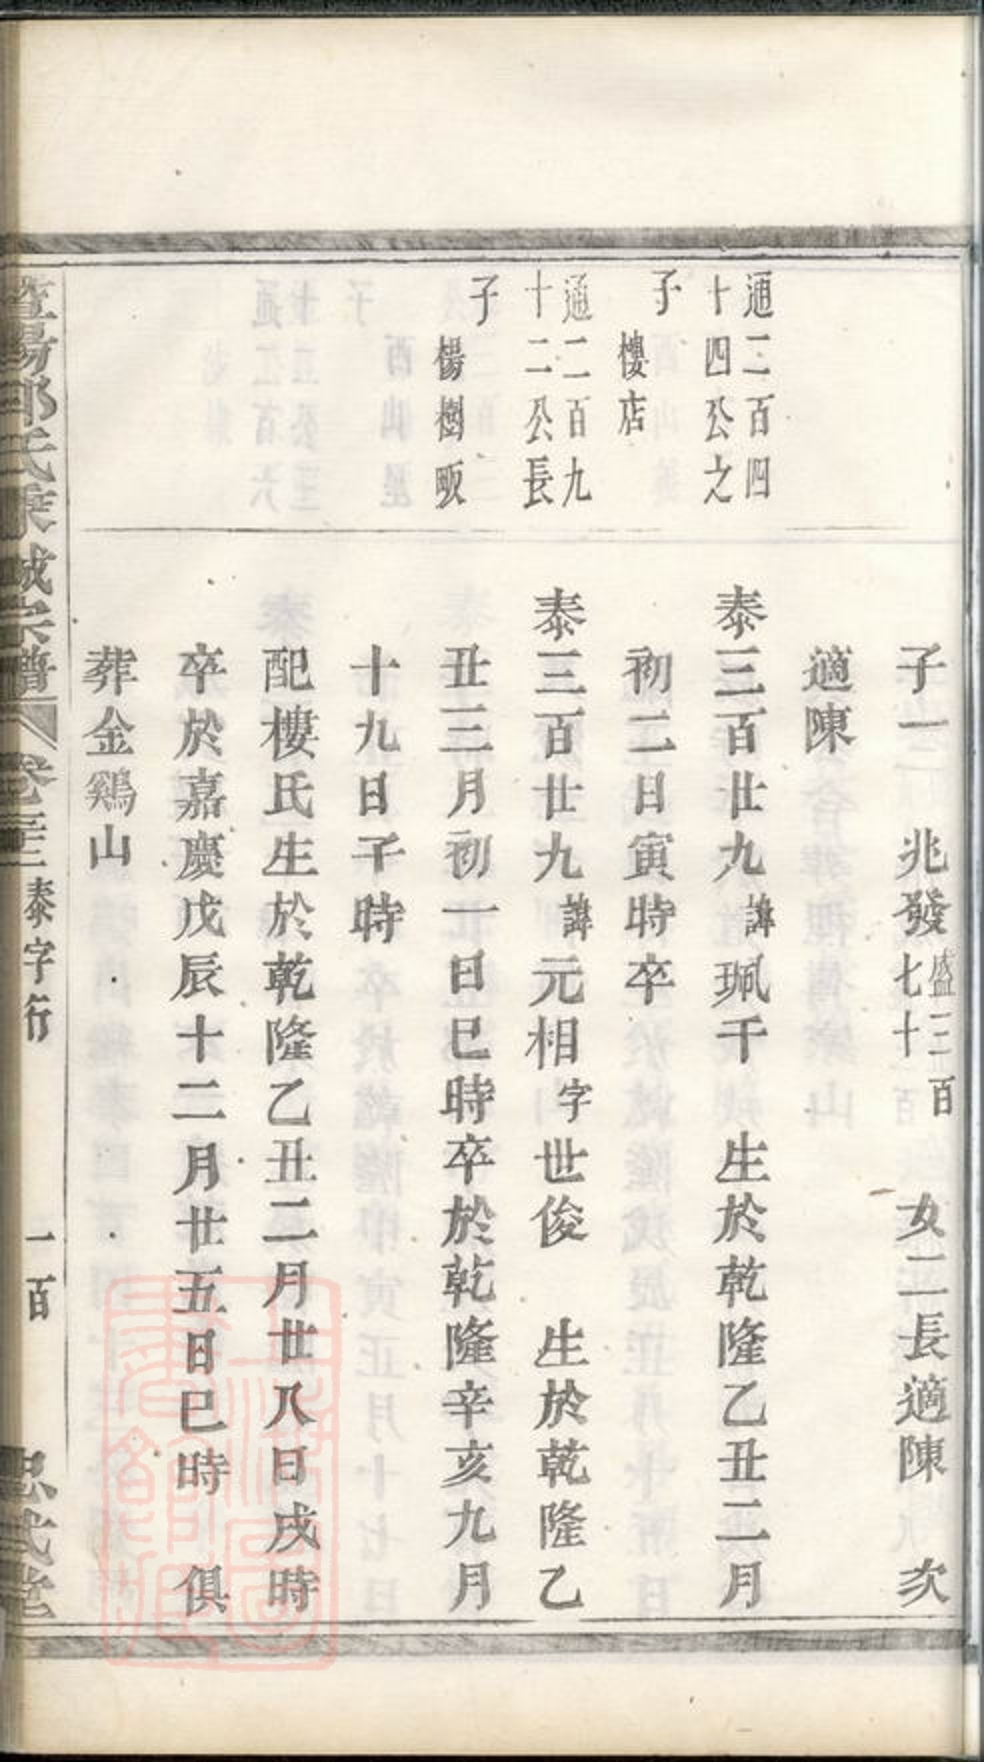 子一　兆發盛三百七十　女二長適陳　次
適陳
通二百四十四公之子　樓店
泰三百廿九諱珮干　生於乾隆乙丑二月
初二日寅時卒
通二百九十二公長子　楊樹畈
泰三百廿九諱元相字世俊　生於乾隆乙
丑三月初一日巳時卒於乾隆辛亥九月
十九日子時
配樓氏生於乾隆乙丑二月廿八日戌時
卒於嘉慶戊辰十二月廿五日巳時　俱
葬金鷄山
暨陽邵氏宗譜　卷　泰字行　一百　忠武堂